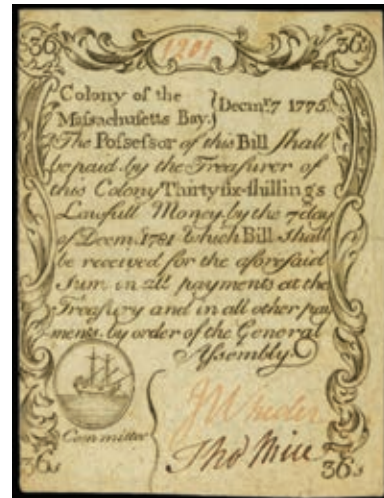 36s 1201 36s
Colony of the
Massachusetts Bay. } Decmr. 7 1775.
The Possessor of this Bill shall
be paid by the Treasurer of
this Colony Thirty six shillings
Lawfull Money by the 7 day
of Decem. 1781 which Bill shall
be received for the aforesaid
Sum in all payments at the
Treasury and in all other pay
ments by order of the General
Assembly
Committee
Tho
36s 36s